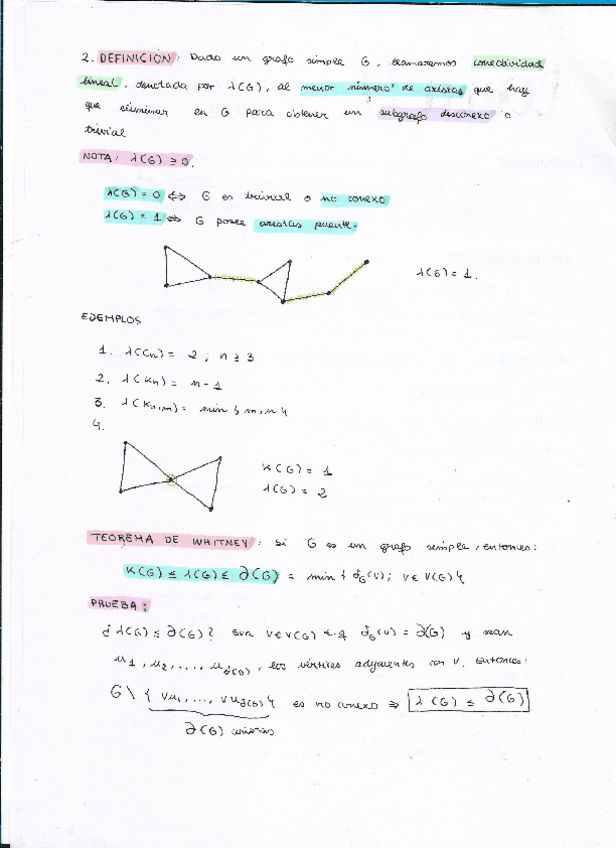 2. DEFINICIÓN: Dado un grafo simple G, llamaremos conectividad
lineal, denotada por λ(G), al menor número de aristas que hay
que eliminar en G para obtener un subgrafo disconexo o
trivial
NOTA: λ(G) ≥ 0.
λ(G) = 0 ⇔ G es trivial o no conexo
λ(G) = 1 ⇔ G posee aristas puente.
λ(G) = 1.
EJEMPLOS
1. λ(Cn) = 2, n ≥ 3
2. λ(Kn) = n-1
3. λ(Kn,m) = min { m, n }
4.
K(G) = 1
λ(G) = 2
TEOREMA DE WHITNEY: Si G es un grafo simple, entonces:
K(G) ≤ λ(G) ≤ ∂(G) = min { ∂G(v); v ∈ V(G) }
PRUEBA:
¿λ(G) ≤ ∂(G)? Sea v ∈ V(G) t.q ∂G(v) = ∂(G) y sean
u1, u2, ..., u∂(G), los vértices adyacentes con v. Entonces:
G \ { vu1, ..., vu∂(G) } es no conexo ⇒ λ(G) ≤ ∂(G)
∂(G) aristas